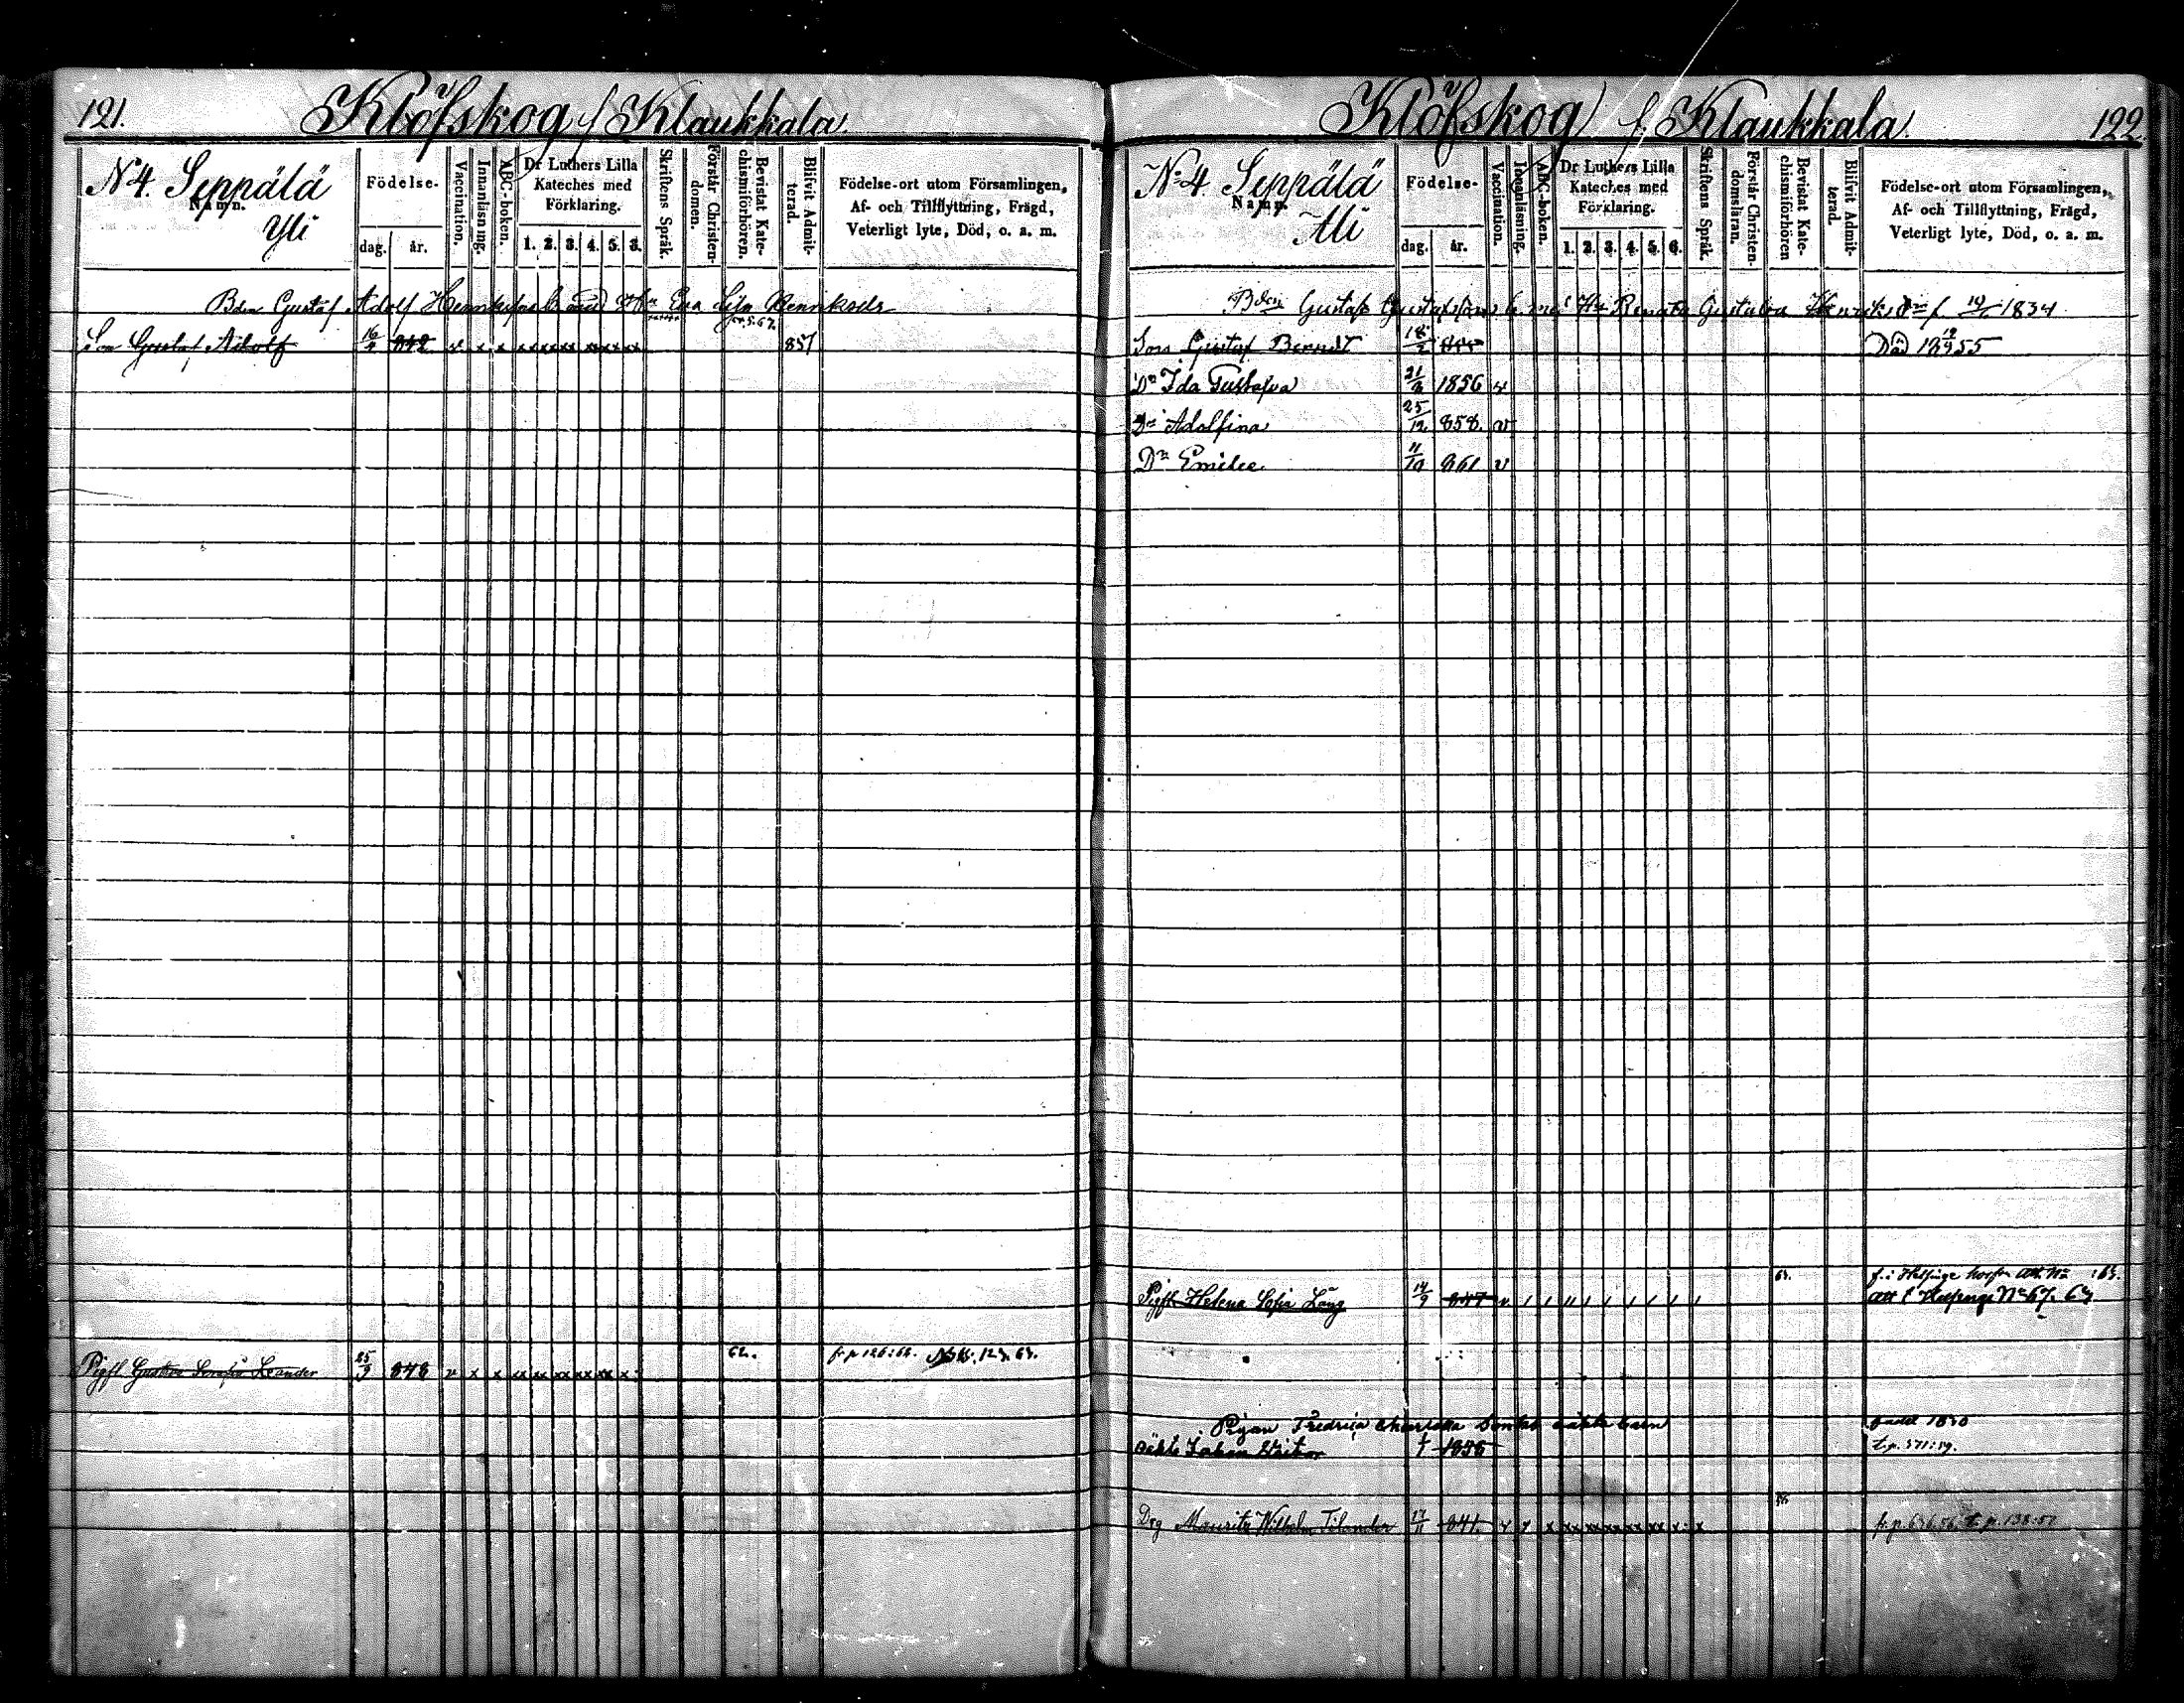 121.
Klöfskog f Klaukkala.
N:4. Seppälä
Yli
Namn.
Födelse-
dag.
år.
Vaccination.
Innanläsning.
ABC-boken.
Dr Luthers Lilla
Kateches med
Förklaring.
1. 2. 3. 4. 5. 6.
Skriftens Språk.
Förstår Christen-
domen.
Bevistat Kate-
chismiförhören.
Blifvit Admit-
terad.
Födelse-ort utom Församlingen,
Af- och Tillflyttning, Frägd,
Veterligt lyte, Död, o. a. m.
Bdn Gustaf Adolf Henriksons b. med Hn Eva Henriksdr
Son Gustaf Adolf 16 842 v x x xx xx xx xx xx 857
62. fr p 126:62. 123. 63.
Pigfl. Gustava Serafia Leander 25/9 848 v x x xx xx xx xx xx x
122.
Klöfskog f. Klaukkala.
N:4 Seppälä
Namn.
Ali
Födelse-
dag.
år.
Vaccination.
Innanläsning.
ABC-boken.
Dr Luthers Lilla
Kateches med
Förklaring.
1. 2. 3. 4. 5. 6.
Skriftens Språk.
Förstår Christen-
domsläran.
Bevistat Kate-
chismiförhören
Blifvit Admit-
terad.
Födelse-ort utom Församlingen,
Af- och Tillflyttning, Frägd,
Veterligt lyte, Död, o. a. m.
Bden Gustaf Gustafssons b. med Hu Renata Gustafva Henriksdr f 1834
Son Gustaf Berndt 18/2 Död 55
Dr Ida Gustafva 21 1856 v
Dr Adolfina 25/12 858. v
Dr Emilie 11/10 861 v
63. f. i Helsinge 63.
Pigfl. Helena Sofia Lång 14/9 847 v att t Helsinge No 67. 63
Pigan Fredrica Charlotta oäkta barn
oäkta Johan Victor 1
t. p. 571:59.
56
Drg Mauritz Wilhelm Tilander 17/11 841. v x x xx xx xx xx xx x x fr. p. 636.56. t. p. 138:57